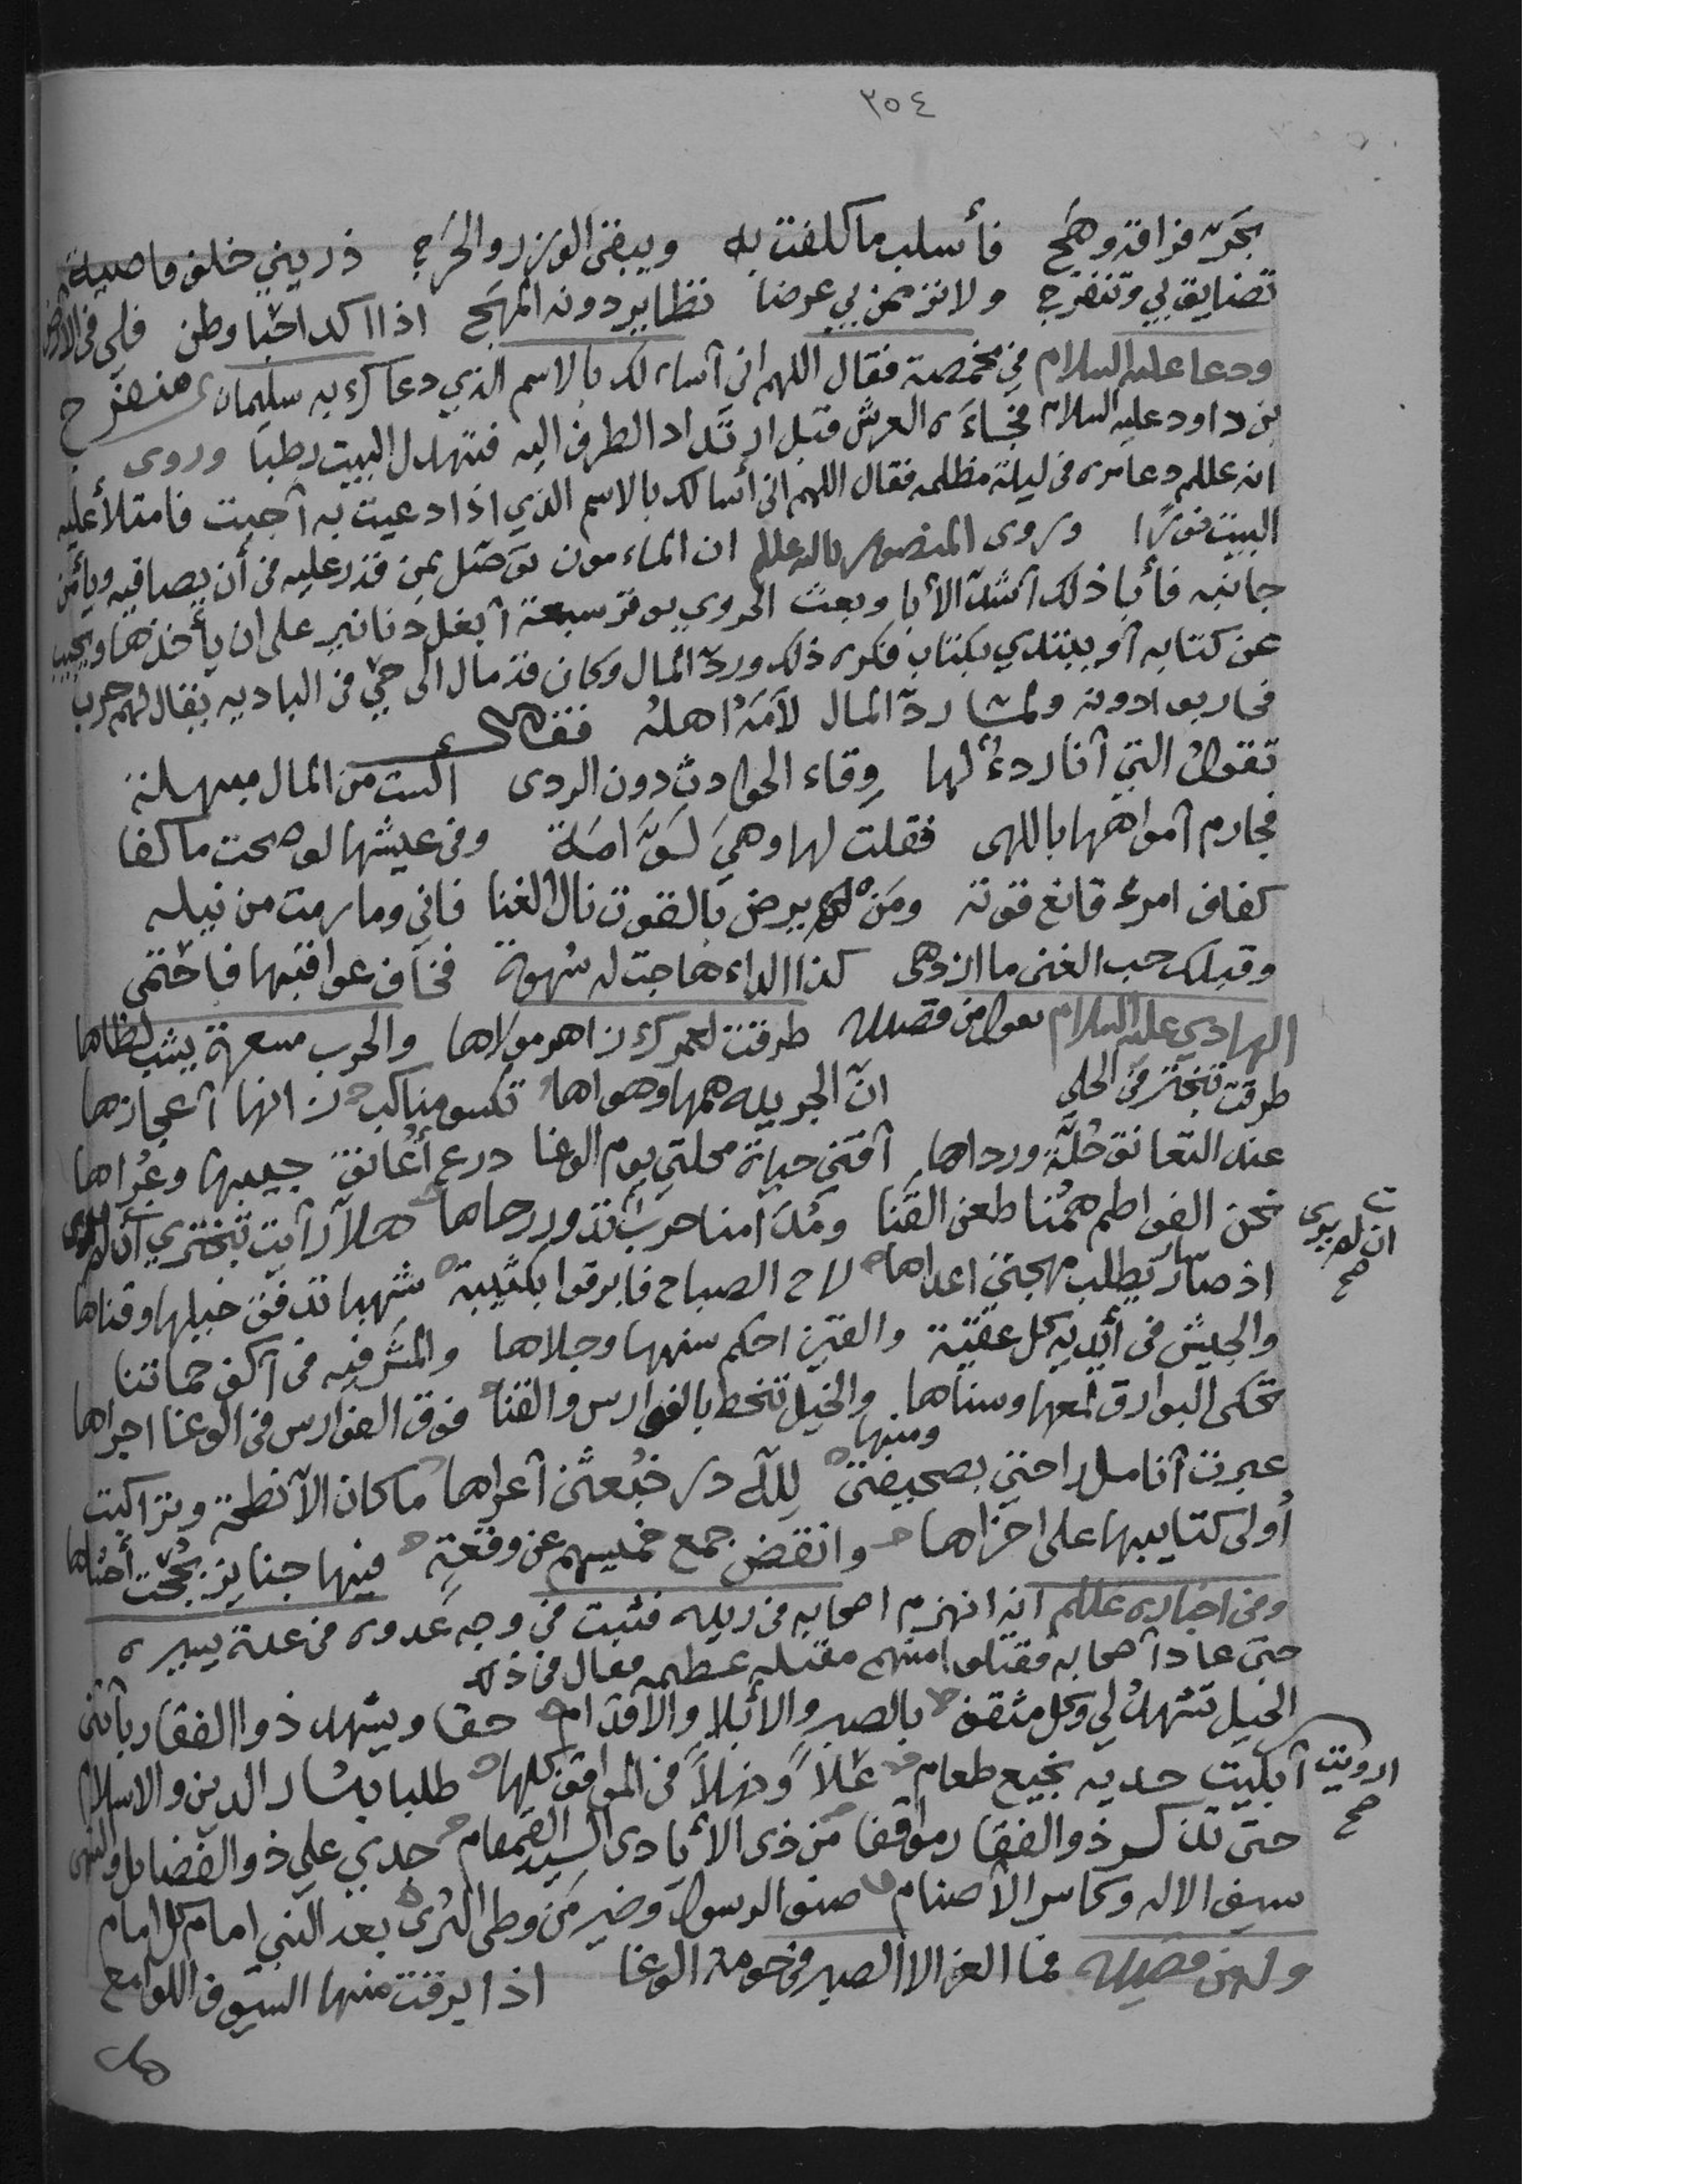 ٣٥٤
بحرّ فراقه وهج فأسلب ما كلفت به ويبقى الوزر والحرج ذريني خلف قاصية
تضايق بي وتنفرج ولا ترمن بي غرضا تطاير دونه المهج اذا اكدا جنا وطن فلي في الارض
منعرج
ودعا عليه السلام في مخمصة فقال اللهم اني أسألك بالاسم الذي دعاك به سليمان
بن داود عليه السلام فجاءه العرش قبل ارتداد الطرف اليه فتهدل البيت رطبا وروى
انه عللم دعا مره في ليلة مظلمه فقال اللهم اني أسالك بالاسم الذي اذا دعيت به أجبت فامتلأ عليه
البيت نورًا وروى المنصور بالله عللم ان المأمون توصّل بمن قدر عليه في أن يصافيه ويأمن
جانبه فأبا ذلك أشدّ الأبا وبعث الهروي بوقر سبعة أبغل دنانير على ان يأخذها ويجيب
عن كتابه أو يبتدي بكتاب فكره ذلك وردّ المال وكان قد مال الى حي في الباديه يقال لهم حرب
فحاربوا دونه ولما ردّ المال لامته اهله فقال
تقول التي أنا ردءٌ لها وقاء الحوادث دون الردى الست من المال مبهلة
مخارم أفواهها باللهى فقلت لها وهي لوّامة وفي عيشها لو صحت ما كفا
كفاف امرء قانع قوته ومن لم يرض بالقوت نال الغنا فاني وما رمت من نيله
وقبلك حب الغنى ما ازدهى كذا الداء هاجت له شهوة فخاف عواقبها فاحتمى
الهادي عليه السلام من قصيده طرقت لعمرك زاهر مولاها والحرب مسعرة يشب لظاها
طرقت تبختر في الحلي انّ الجريه همها وهواها تكسو مناكب زانها أعجازها
عند التعانق حُلّة ورداها أقني حياة محلتي يوم الوغا درع أعانق جيبها وعُراها
نحن الفواطم همنا طعن القنا ومُدامنا حرب تدور رحاها هلا رأيت تبختري
ان لم يرى
صح
اذ صار يطلب مهجتي اعداها لاح الصباح فابرقوا بكتيبة شهبا تدفق خيلها وقناها
والجيش في أيديه كل عقيقة والقين احكم سنها وجلاها والمشرفيه في أكف حماتنا
تحكى البوارق لمعها وسناها والخيل تنحط بالفوارس والقنا فوق الفوارس في الوغا اجراها
ومنها
عبرت أنامل راحتي بصحيفتي لله در خبعثن أعراها ما كان الا نطحة وتراكبت
أولى كتايبها على اخراها وانفض جمع خميسهم عن وقعة فيها جنايز
ومن اخباره عللم انه انهزم اصحابه في زبله فثبت في وجه عدوه في عدة يسيره
حتى عاد أصحابه فقتلوا منهم مقتله عظيمه فقال في ذلك
الخيل تشهد لي وكل مثقف بالصبر والأبلا والاقدام حقا ويشهد ذو الفقار بأنني
ارويت
صح
أبكيت حديه نجيع طعام عَلاً ونهلاً في المواقف كلها طلبا بثار الدين والاسلام
حتى تذكر ذو الفقار مواقفا من ذى الأيادى السيد القمقام جدي علي ذو الفضايل والنهى
سيف الاله وكاسر الأصنام صنو الرسول وخير من وطى الثرى بعد النبي امام كل امام
وله من قصيده فما العز الا الصبر في حومة الوغا اذا برقت منها السيوف اللوامع